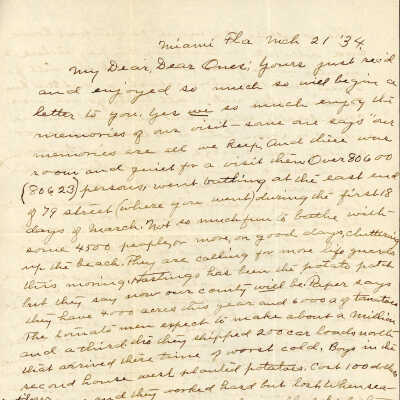 Miami Fla Mch 21 '34.
My Dear, Dear Ones; Yours just rec'd
and enjoyed so much so will begin a
letter to you. Yes we so much enjoy the
memories of our visit - some one says "our
memories are all we keep. And there was
room and quiet for a visit then. Over 80600
(80623) persons, went bathing at the east end
of 79 street (where you went) during the first 18
days of March. Not so much fun to bathe with
some 4500 people, or more, on good days, cluttering
up the beach. They are calling for more life guards
this morning. Hastings has been the potato patch
but they say now our county will be. Paper says
they have 4000 acres this year and 6000 a of tomatoes
The tomato men expect to make about a million
and a third. die they shipped 200 car loads north
that arrived there time of worst cold. Boys in the
second house west planted potatoes. Cost 100 dolls
and they worked hard but lost when sea-